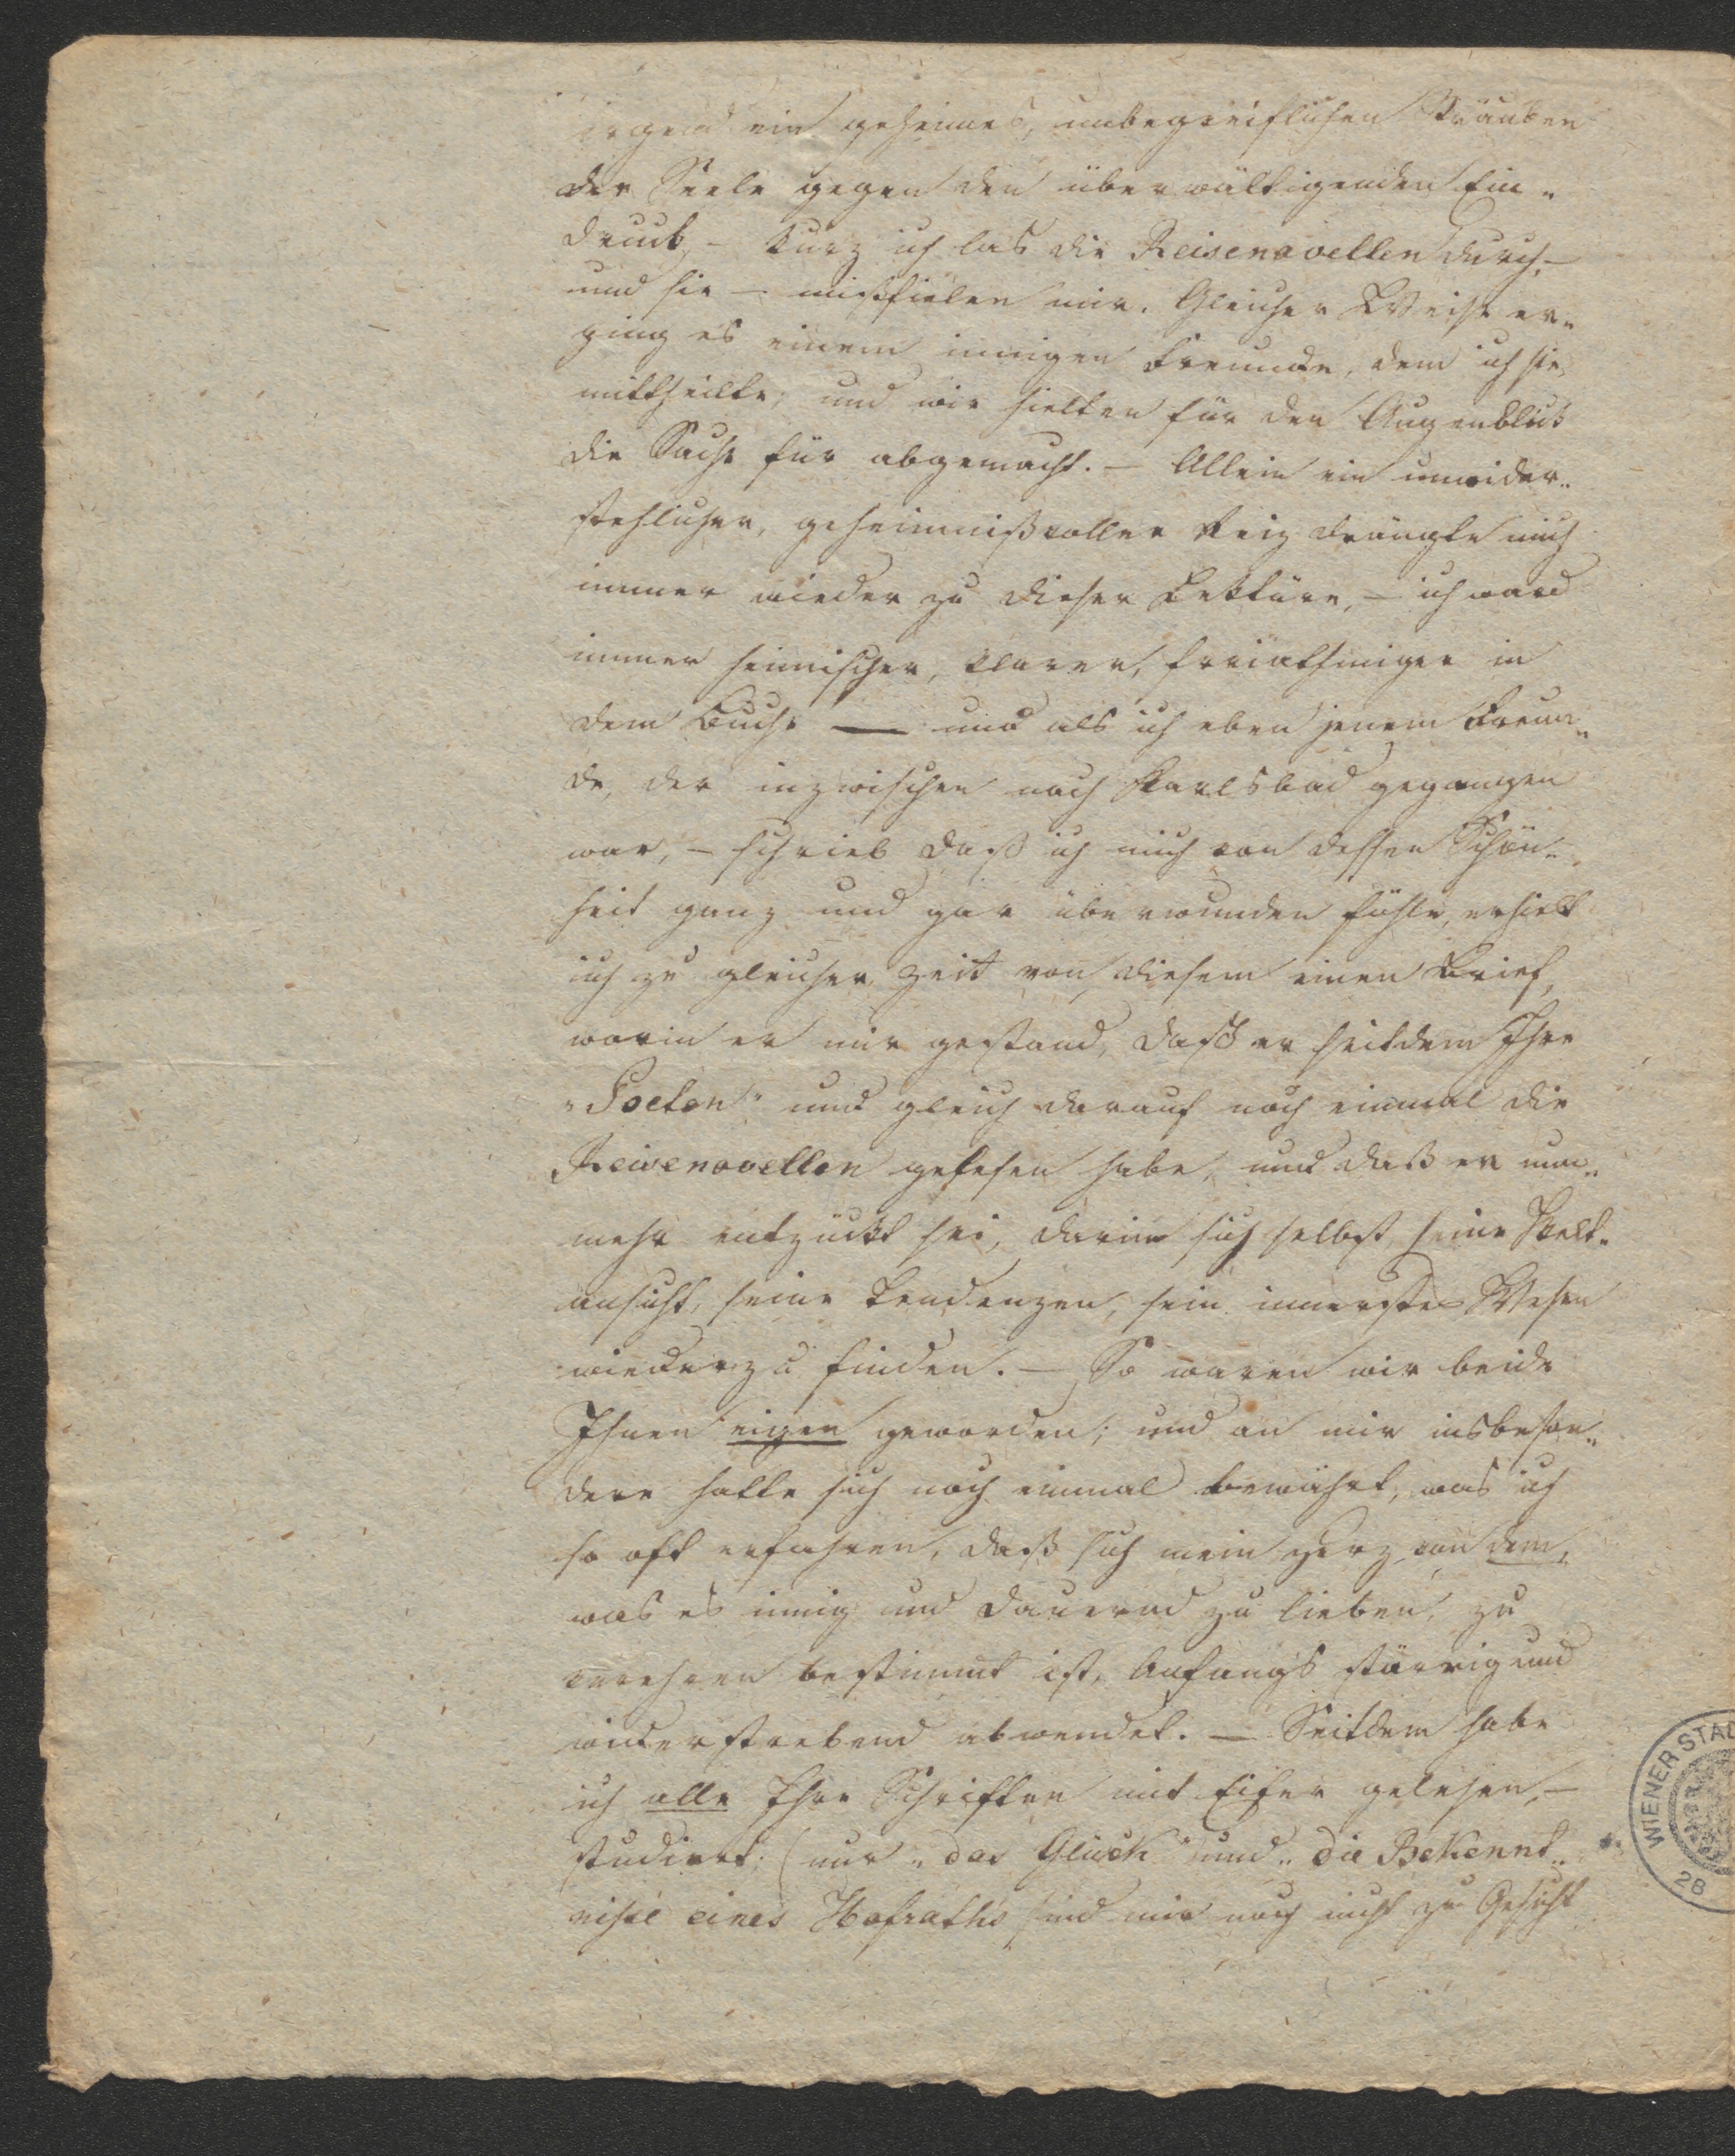 irgend ein geheimes, unbegreifliches Sträuben
der Seele gegen den überwältigenden Ein„
druck, – kurz ich las die Reisenovellen durch, –
und sie – mißfielen mir. Gleicher Weise er„
ging es einem innigen Freunde, dem ich sie
mittheilte; und wir hielten für den Augenblick
die Sache für abgemacht. – Allein ein unwider„
stehlicher, geheimnißvoller Reiz drängte mich
immer wieder zu dieser Lektüre, – ich ward
immer heimischer, klarer, freiathmiger in
dem Buche — und als ich eben jenem Freun„
de, der inzwischen nach Karlsbad gegangen
war, – schrieb daß ich mich von dessen Schön„
heit ganz und gar überwunden fühle, erhielt
ich zu gleicher Zeit von diesem einen Brief,
worin er mir gestand, daß er seitdem Ihre
„Poeten" und gleich darauf noch einmal die
Reisenovellen gelesen habe, und daß er nun„
mehr entzückt sei, darin sich selbst, seine Welt„
ansicht, seine Tendenzen, sein innerstes Wesen
wiederzufinden. – So waren wir beide
Ihnen eigen geworden; und an mir insbeson„
dere hatte sich noch einmal bewährt, was ich
so oft erfahren, daß sich mein Herz von dem,
was es innig und dauernd zu lieben, zu
verehren bestimmt ist, Anfangs störrig und
widerstrebend abwendet. — Seitdem habe
ich alle Ihre Schriften mit Eifer gelesen, –
studiert; (nur „das Glück" und „die Bekennt„
nisse eines Hofraths sind mir noch nicht zu Gesicht
WIENER STAD
28